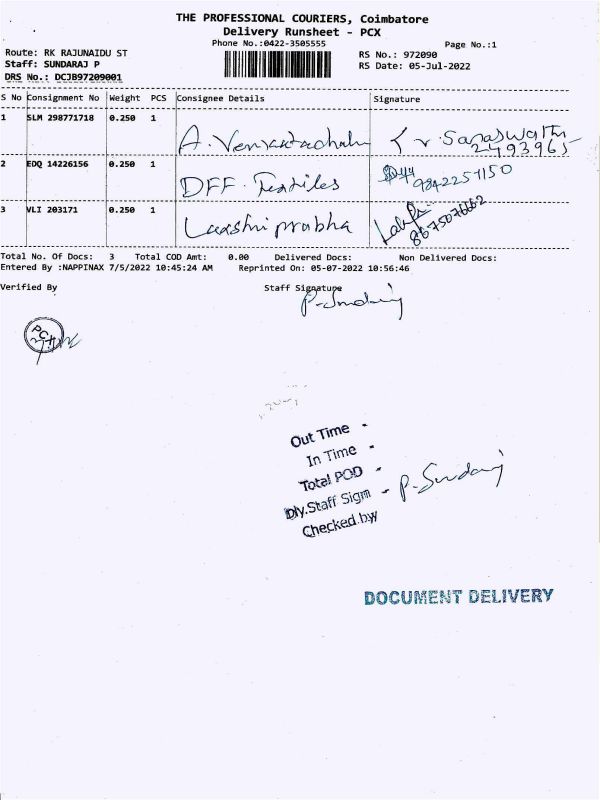 THE PROFESSIONAL COURIERS, Coimbatore
Delivery Runsheet - PCX
Phone No.:0422-3505555
Page No.:1
Route: RK RAJUNAIDU ST
RS No.: 972090
Staff: SUNDARAJ P
RS Date: 05-Jul-2022
DRS No.: DCJB97209001
S No Consignment No Weight PCS Consignee Details Signature
1 SLM 298771718 0.250 1 A. Venkatachalam K.V. Saraswathi
2493965
2 EDQ 14226156 0.250 1 DFF. Textiles 9842257150
3 VLI 203171 0.250 1 Laxshmi prabha 8675076662
Total No. Of Docs: 3 Total COD Amt: 0.00 Delivered Docs: Non Delivered Docs:
Entered By :NAPPINAX 7/5/2022 10:45:24 AM Reprinted On: 05-07-2022 10:56:46
Verified By Staff Signature
P. Sundaraj
PCX
Out Time -
In Time -
Total POD -
Dly.Staff Sign - P. Sundaraj
Checked by
DOCUMENT DELIVERY